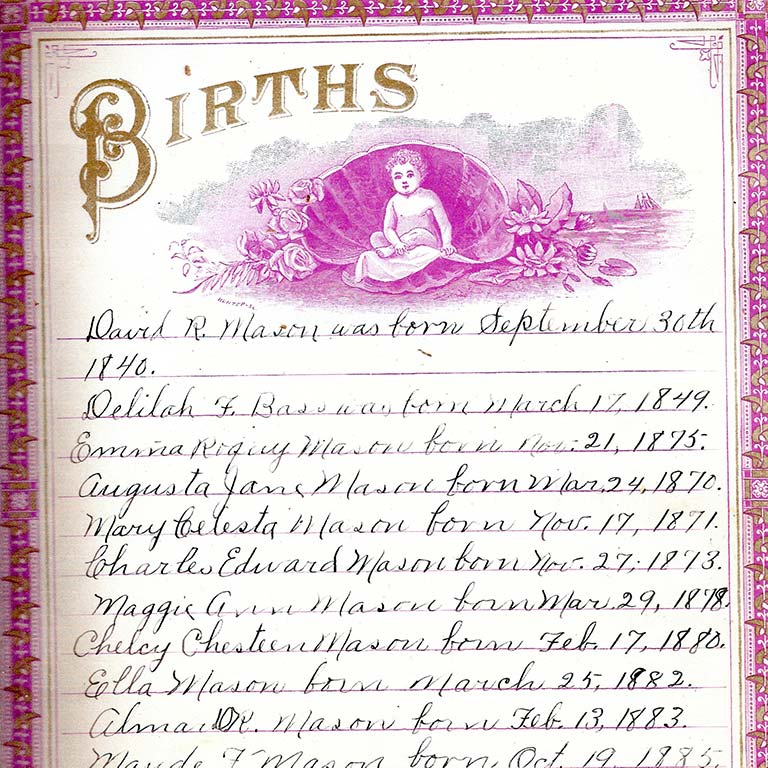 BIRTHS
David R. Mason was born September 30th
1840.
Delilah F. Bass was born March 17, 1849.
Emma Mason born Nov. 21, 1875.
Augusta Jane Mason born Mar. 24, 1870.
Mary Celesta Mason born Nov. 17, 1871.
Charles Edward Mason born Nov. 27, 1873.
Maggie Ann Mason born Mar. 29, 1878.
Chelcy Chesteen Mason born Feb. 17, 1880.
Ella Mason born March 25, 1882.
Alma R. Mason born Feb. 13, 1883.
Maude F Mason born Oct. 19, 1885.